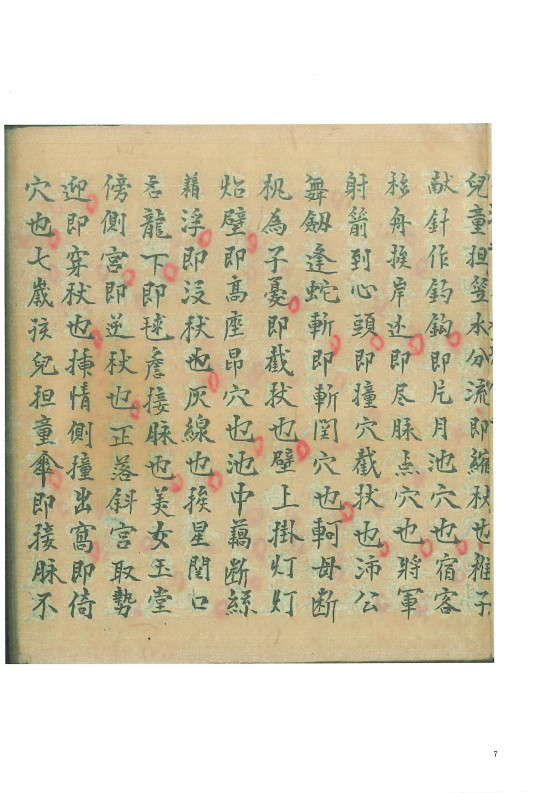 兒童担笠水分流即縮杖也稚子
献針作釣鈎即片月池穴也宿客
移舟挨岸边即尽脉点穴也將軍
射箭到心頭即撞穴截杖也沛公
舞劔逢蛇斬即斬関穴也軻母断
机為子憂即截杖也壁上掛灯灯
焰壁即高座昂穴也池中藕断絲
藕浮即没杖也灰線也挨星閗口
若龍下即毬簷接脉也美女玉堂
傍側宮即逆杖也正落斜宮取勢
迎即穿杖也揷情側撞出窩即倚
穴也七歲孩兒担童傘即接脉不
7